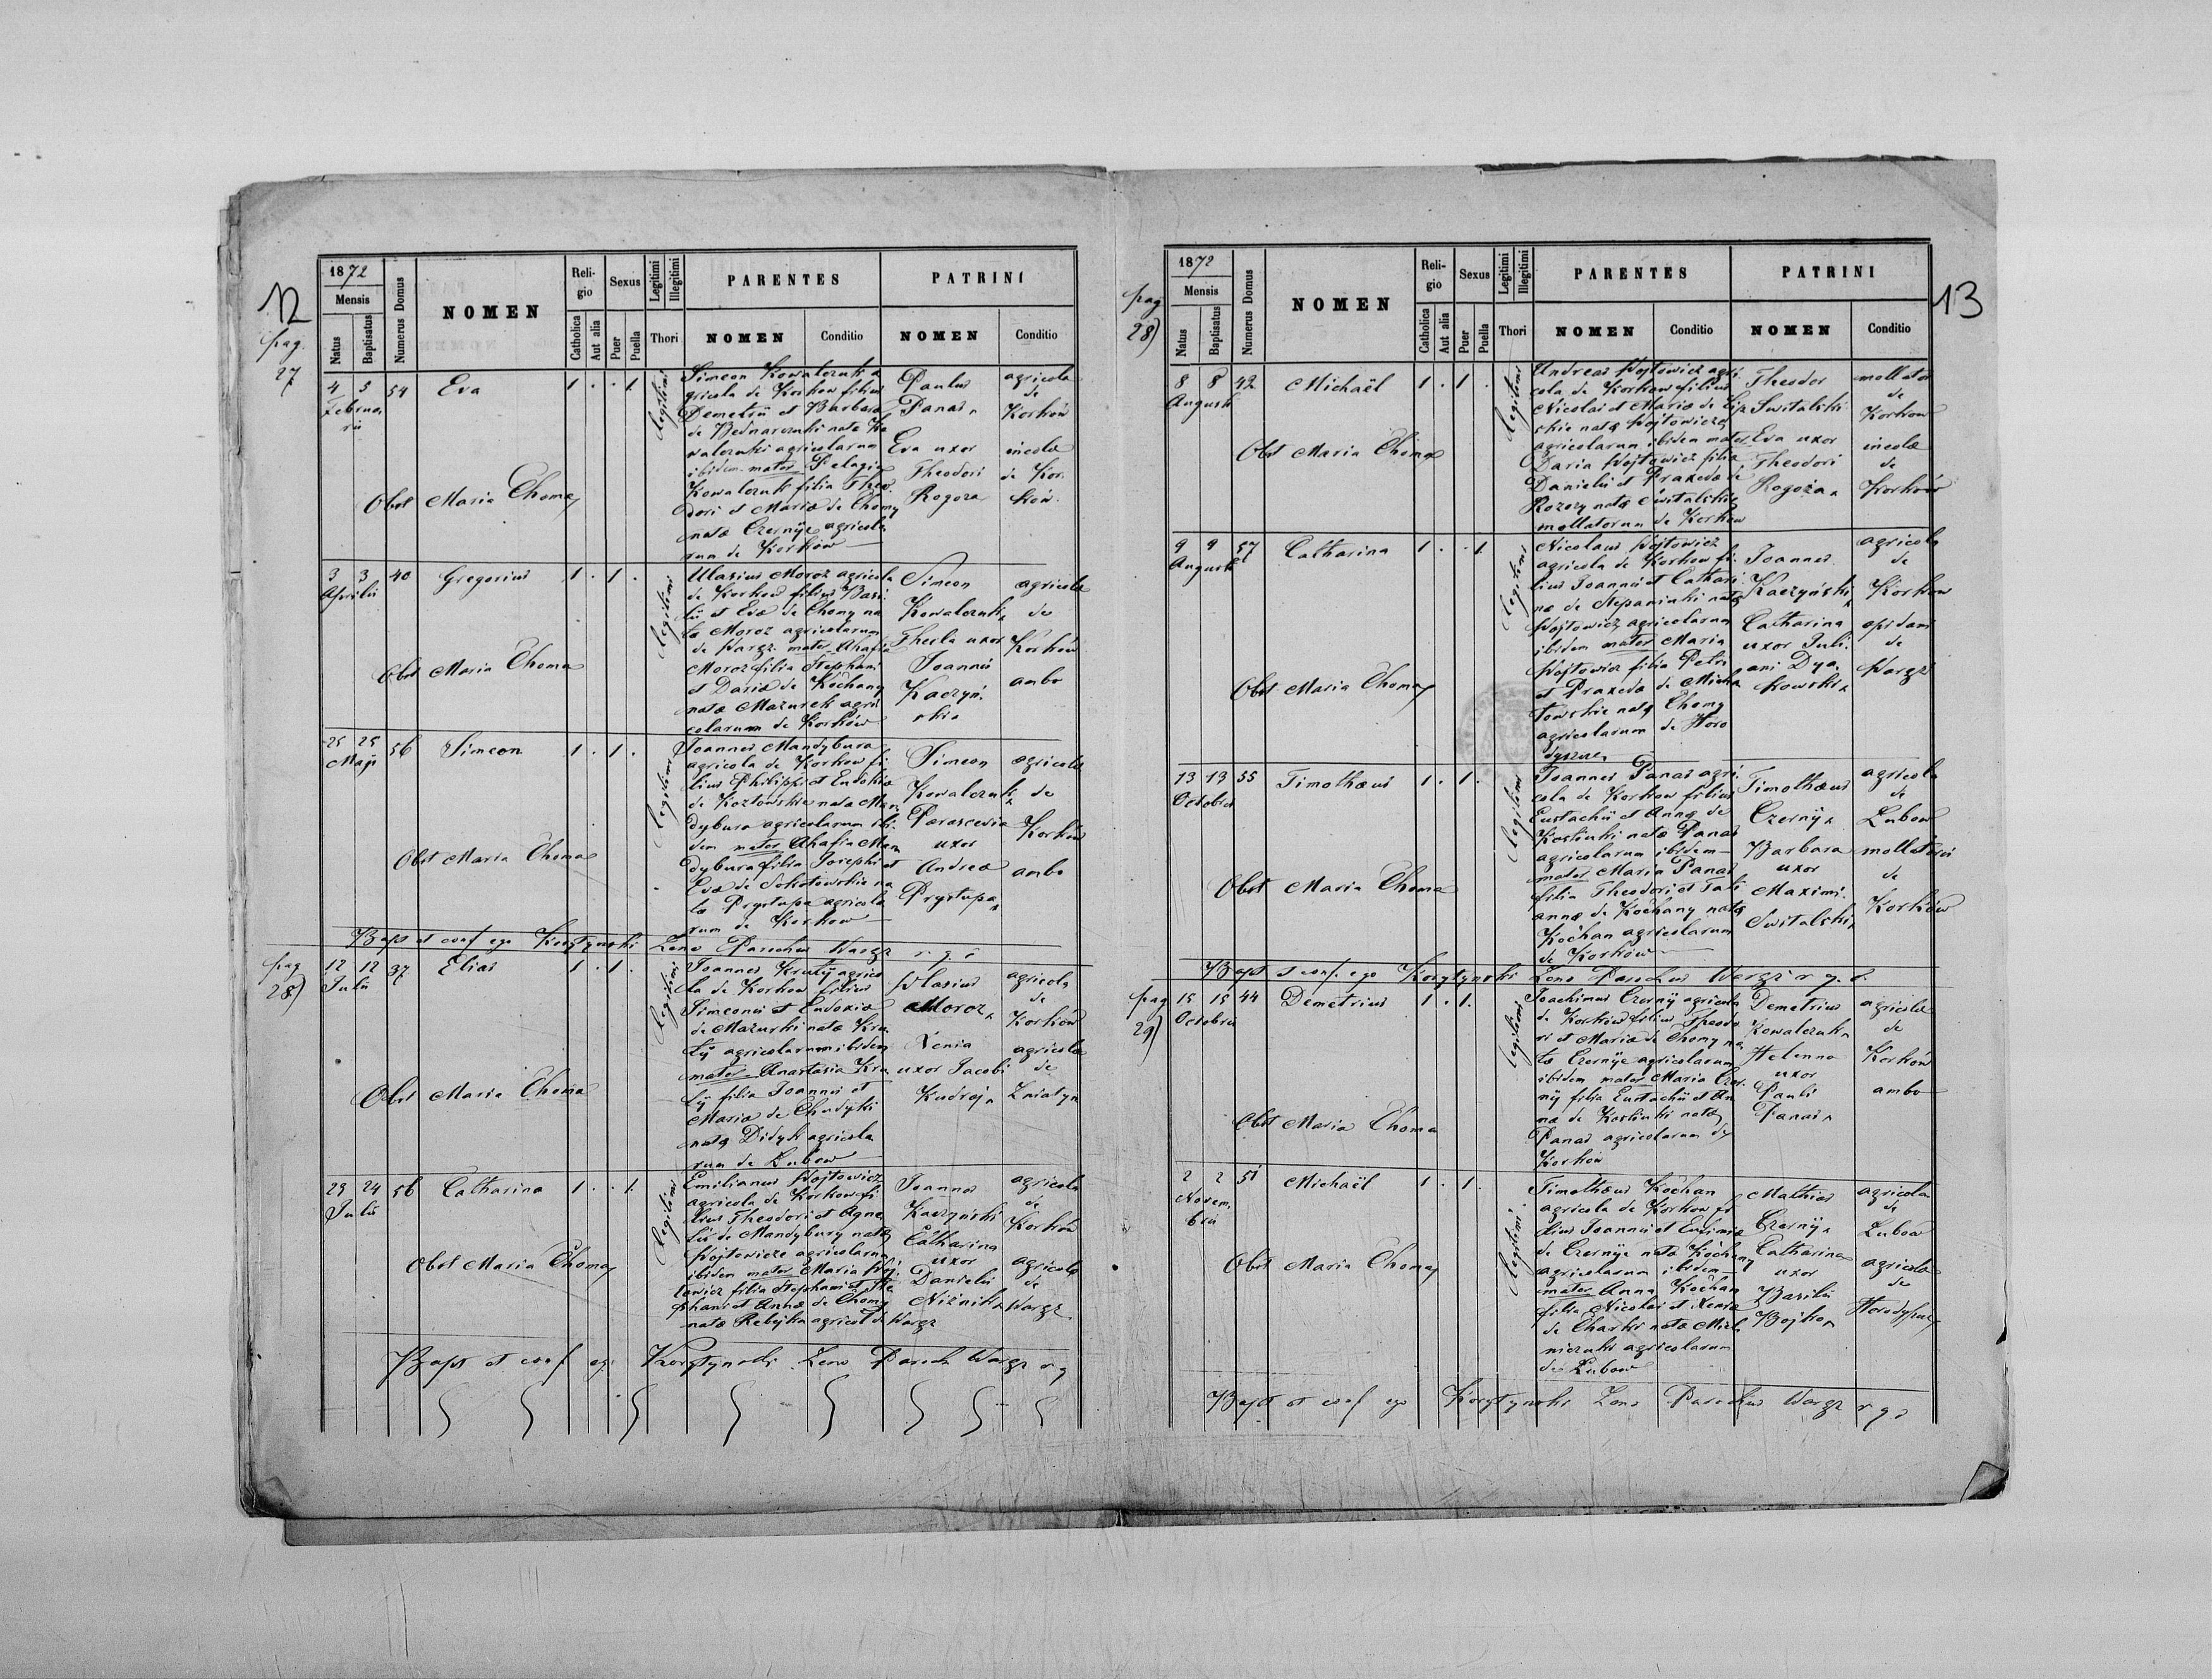 12
pag.
27
1872
Mensis
Natus
Baptisatus
Numerus Domus
NOMEN
Reli-
gio
Catholica
Aut alia
Sexus
Puer
Puella
Legitimi
Illegitimi
Thori
PARENTES
NOMEN
Conditio
PATRINI
NOMEN
Conditio
4 5 54 Eva 1 . . 1
Februa
rii
Obst Maria Choma
Legitimi
Simeon Kowalczuk a
gricola de Korkow filius
Demetrii et Barbara
de Bednarczuki nata Ko
walczuki agricolarum
ibidem mater Pelagia
Kowalczuk filia Theo
dori et Mariæ de Chomy
natæ Czernÿe agricola
rum de Korków
Paulus
Panas
Eva uxor
Theodori
Rogoza
agricola
de
Korków
incolæ
de Kor
ków
3 3 40 Gregorius 1 . 1 .
Aprilis
Obst Maria Choma
Legitimi
Ulasius Moroz agricola
de Korkow filius Basi
lii et Evæ de Chomy na
tæ Moroz agricolarum
de Waręz mater Ahafia
Moroz filia Stephani
et Dariæ de Kochany
natæ Mazurek agri
colarum de Korków
Simeon
Kowalczuk
Thecla uxor
Joannis
Kaczyń
ski
agricolæ
de
Korków
ambo
25 25 56 Simeon 1 . 1 .
Maji
Obst Maria Choma
Legitimi
Joannes Mandybura
agricola de Korkow fi
lius Philippi et Eudokiæ
de Kozłowskie nata Man
dybura agricolarum ibi
dem mater Ahafia Man
dybura filia Josephi et
Evæ de Sokołowskie na
tæ Prystupa agricola
rum de Korkow
Simeon
Kowalczuk
Parascevia
uxor
Andreæ
Prystupa
agricolæ
de
Korków
ambo
Bapt et conf ego Korytynski Leno Parochus Waręz
pag
28)
12 12 37 Elias 1 . 1 .
Julii
Obst Maria Choma
Legitimi
Joannes Krutÿ agrico
la de Korkow filius
Simeonis et Eudoxiæ
de Mazurki natæ Kru
tÿ agricolarum ibidem
mater Anastasia Kru
tÿ filia Joannis et
Mariæ de Chudyki
natæ Didyk agricola
rum de Lubow
Wlasius
Moroz
Xenia
uxor Jacobi
Kudroj
agricola
de
Korków
agricolæ
de
Zniatyn
23 24 56 Catharina 1 . . 1
Julii
Obst Maria Choma
Legitimi
Emilianus Wojtowicz
agricola de Korkow fi
lius Theodori et Agne
tis de Mandybury nata
Wojtowicze agricolarum
ibidem mater Maria Woj
towicz filia Stephani et Ste
phani et Annæ de Chomy
natæ Rebejka agricol de Waręz
Joannes
Kaczyński
Catharina
uxor
Danielis
Niznik
agricola
de
Korków
agricola
de
Waręz
Bapt et conf ego Korytynski Leno Paroch Waręz
13
pag
28)
1872
Mensis
Natus
Baptisatus
Numerus Domus
NOMEN
Reli-
gio
Catholica
Aut alia
Sexus
Puer
Puella
Legitimi
Illegitimi
Thori
PARENTES
NOMEN
Conditio
PATRINI
NOMEN
Conditio
8 8 42 Michaël 1 . 1 .
Augusti
Obst Maria Choma
Legitimi
Andreas Wojtowicz agri
cola de Korkow filius
Nicolai et Mariæ de
skie nata Wojtowicze
agricolarum ibidem mater
Daria Wojtowicz filia
Danielis et Praxeda de
Rozozy nata Switalskie
mollatorum de Korkow
Theodor
Switalski
Eva uxor
Theodori
Rogoża
mollator
de
Korkow
incolæ
de
Korków
9 9 57 Catharina 1 . . 1
Augusti
Obst Maria Choma
Legitimi
Nicolaus Wojtowicz
agricola de Korkow fi
lius Joannis et Cathari
næ de Stepaniuki nata
Wojtowicz agricolarum
ibidem mater Maria
Wojtowicz filia Petri
et Praxeda de Micha
towskie nata Chomy
agricolarum de Horo
dyszcze
Joannes
Kaczyński
Catharina
uxor Juli
ani Dya
kowski
agricola
de
Korkow
opidani
de
Waręz
13 13 55 Timothæus 1 . 1 .
Octobris
Obst Maria Choma
Legitimi
Joannes Panas agri
cola de Korkow filius
Eustachii et Anna de
Kostiuki natæ Panas
agricolarum ibidem
mater Maria Panas
filia Theodori et Tati
annæ de Kochany nata
Kochan agricolarum
de Korków
Timothæus
Czernÿ
Barbara
uxor
Maximi
Switalski
agricola
de
Lubow
mollatoris
de
Korków
Bapt et conf ego Korytynski Leno Parochus Waręz
pag
29)
15 15 44 Demetrius 1 . 1 .
Octobris
Obst Maria Choma
Legitimi
Joachimus Czernÿ agricola
de Korków filius Theodo
ri et Mariæ de Chomy na
tæ Czernÿe agricolarum
ibidem mater Maria Czer
nÿ filia Eustachii et An
næ de Kostiuki natæ
Panas agricolarum de
Korków
Demetrius
Kowalczuk
Helenna
uxor
Pauli
Panas
agricolæ
de
Korków
ambo
2 2 51 Michaël 1 . 1 .
Novem
bris
Obst Maria Choma
Legitimi
Timothæus Kochan
agricola de Korkow fi
lius Joannis et Eufimiæ
de Czernÿe natæ Kochany
agricolarum ibidem
mater Anna Kochan
filia Nicolai et Xenia
de Charki natæ Miel
niczuki agricolarum
de Lubow
Mathias
Czernÿ
Catharina
uxor
Basilii
Bojko
agricola
de
Lubow
agricolæ
de
Horodyszcz
Bapt et conf ego Korytynski Leno Parochus Waręz